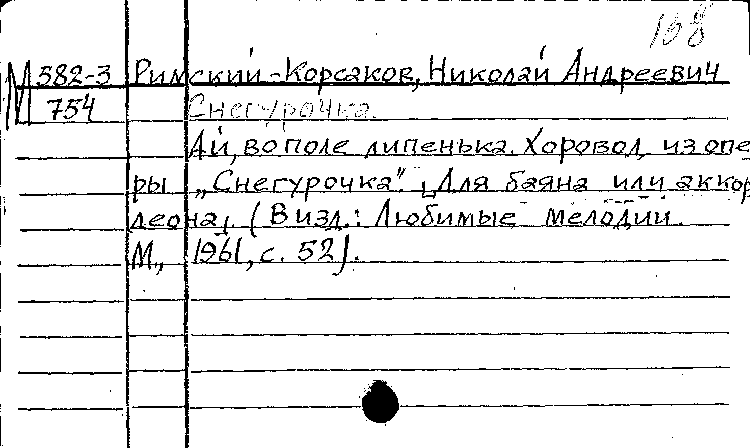 158
М 582-3 Римский-Корсаков, Николай Андреевич
754 Снегурочка.
Ай, во поле липенька. Хоровод из опе
ры „Снегурочка". [Для баяна или аккор
деона]. (В изд.: Любимые мелодии.
М., 1961, с. 52).